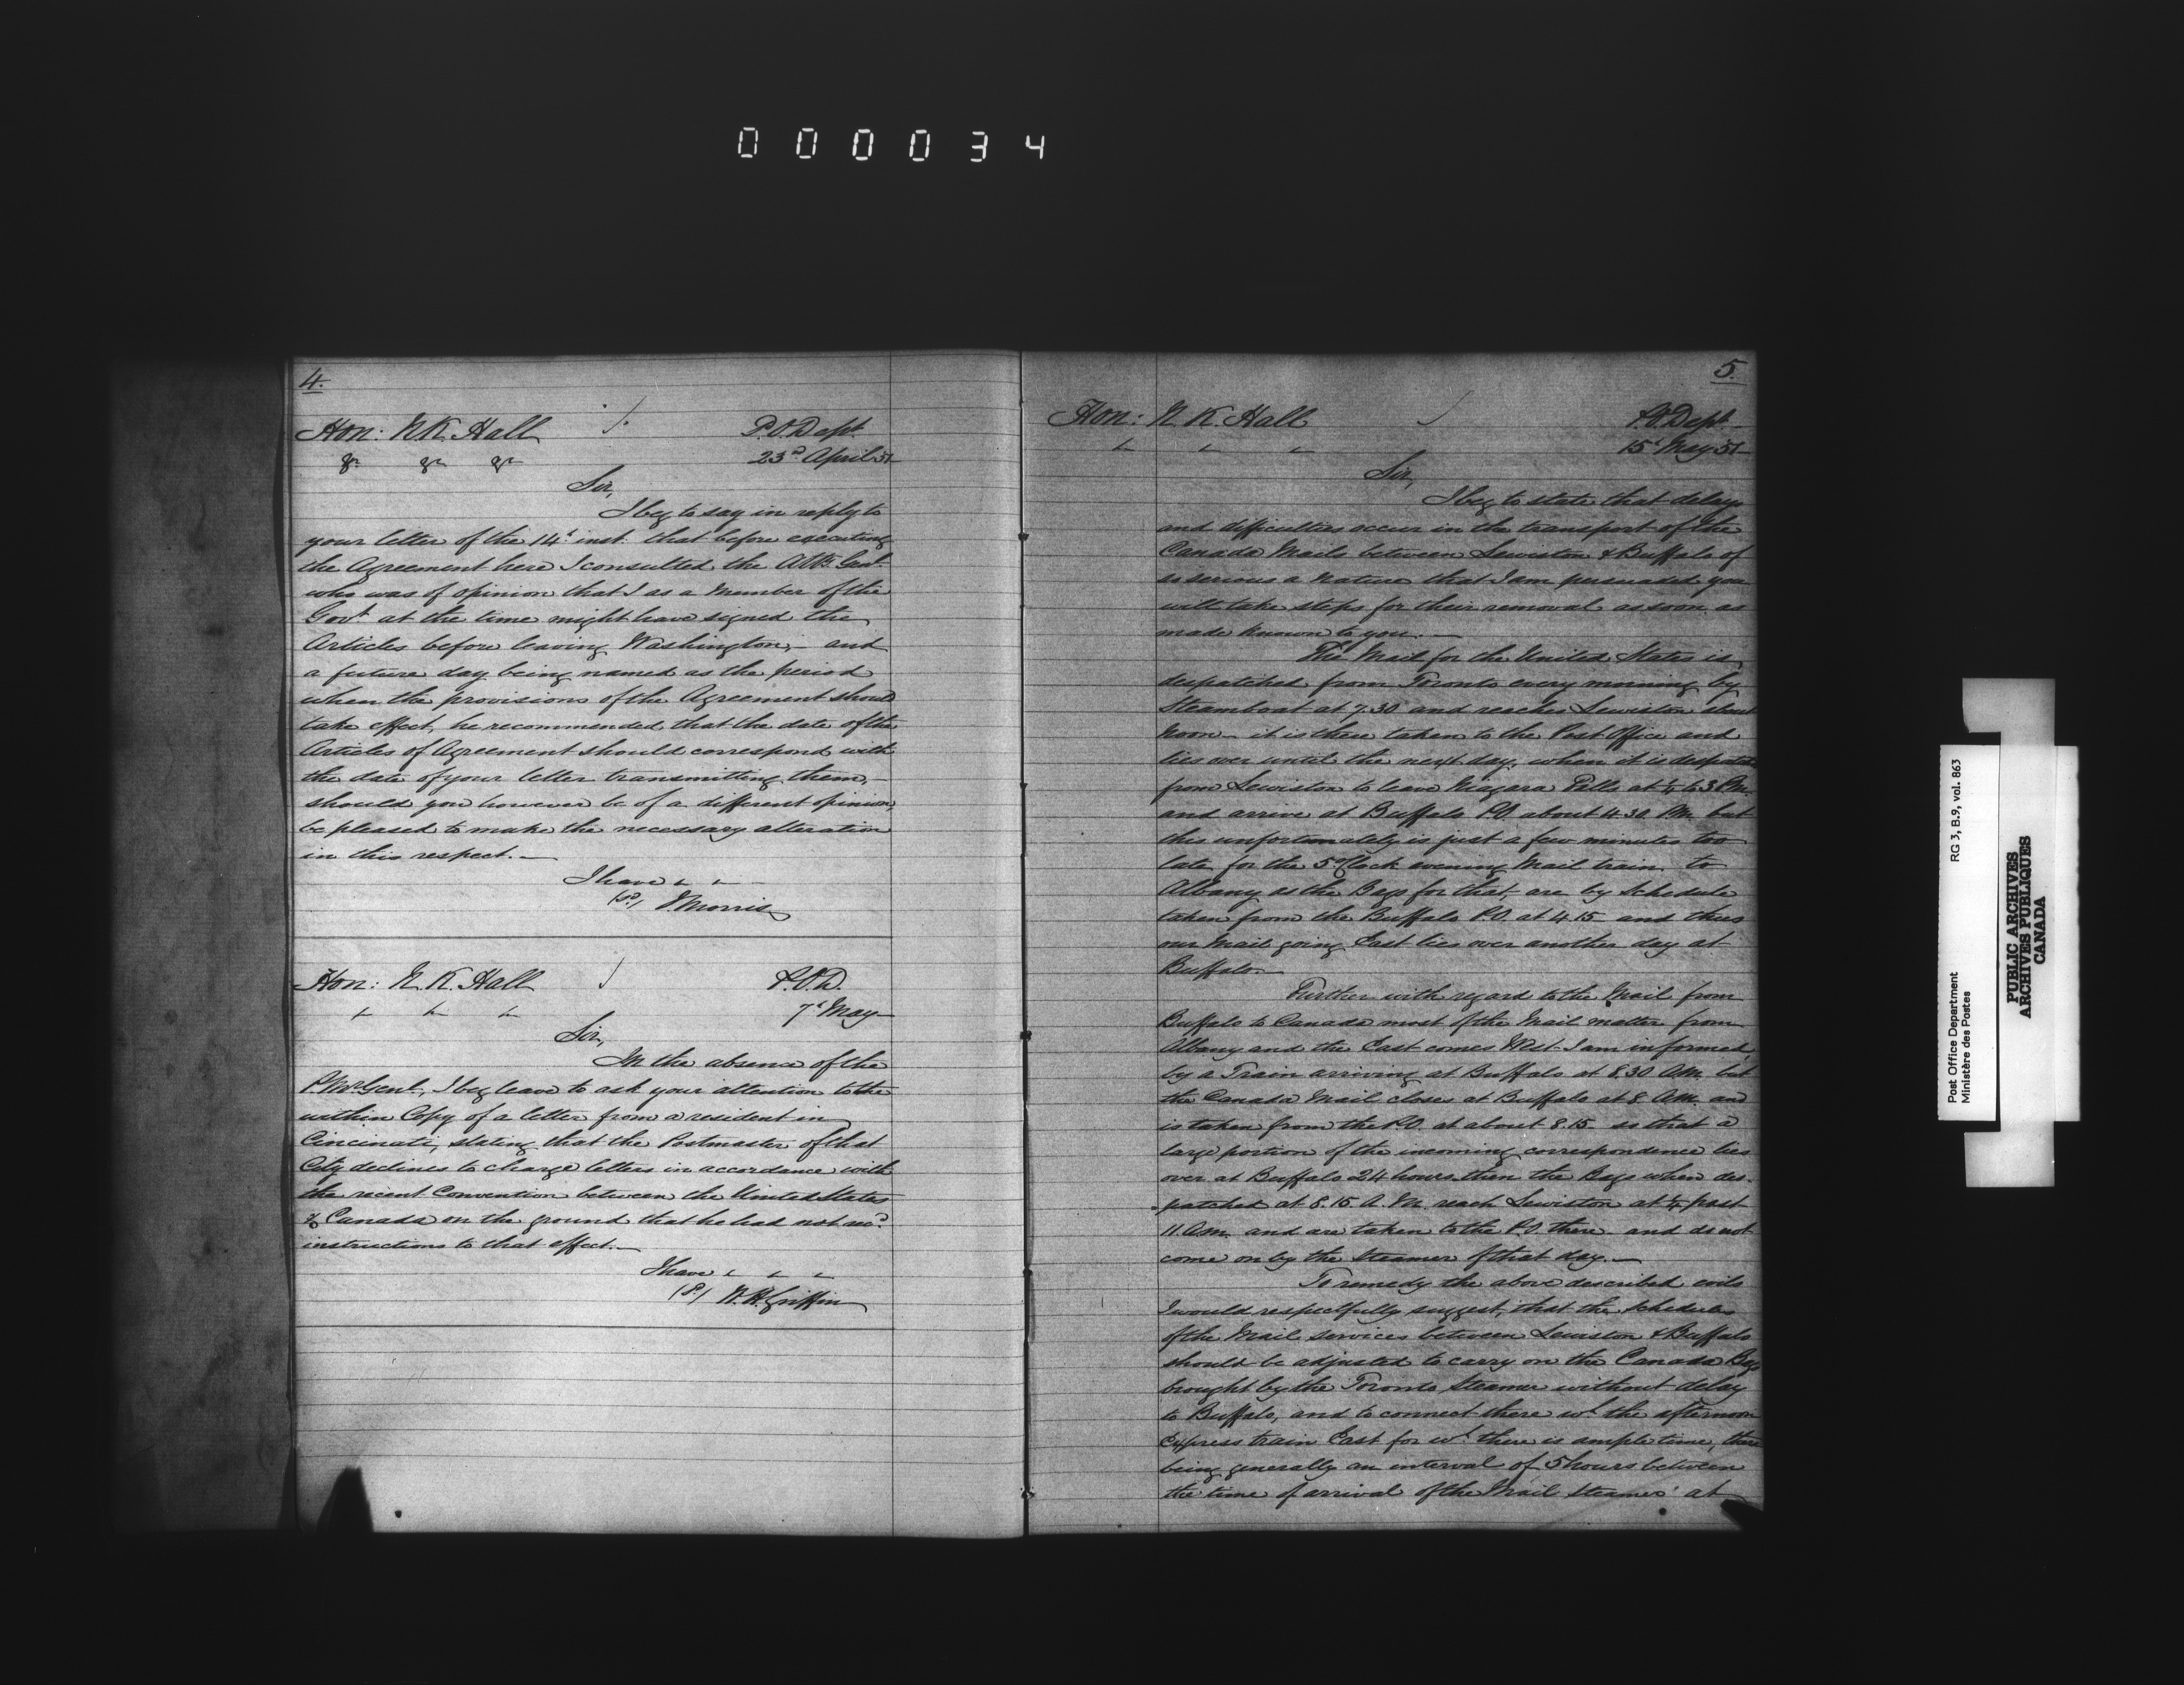 000034
4.
Hon: N. K. Hall
P.O. Dept.
&c &c &c
23d April 51
Sir,
I beg to say in reply to
your letter of the 14t inst. that before executing
the Agreement here I consulted the Atty Genl.
who was of opinion that I as a Member of the
Govt at the time might have signed the
Articles before leaving Washington; - and
a future day being named as the period
when the provisions of the Agreement should
take effect, he recommended that the date of the
Articles of Agreement should correspond with
the date of your letter transmitting them, -
should you however be of a different opinion,
be pleased to make the necessary alteration
in this respect. -
I have
(Sd) J. Morris
Hon: N. K. Hall
P.O.D.
7t May
Sir,
In the absence of the
P. Mr. Genl., I beg leave to ask your attention to the
within Copy of a letter from a resident in
Cincinati, stating that the Postmaster of that
City declines to charge letters in accordance with
the recent Convention between the United States
& Canada on the ground that he had not recd.
instructions to that effect. -
I have
(Sd) W. H. Griffin
5.
Hon: N. K. Hall
P.O. Dept.
15t May 51
Sir,
I beg to state that delays
and difficulties occur in the transport of the
Canada Mails between Lewiston & Buffalo of
so serious a nature that I am persuaded you
will take steps for their removal as soon as
made known to you. -
The Mail for the United States is
despatched from Toronto every morning by
Steamboat at 7.30 and reaches Lewiston about
Noon - it is there taken to the Post Office and
lies over until the next day, when it is despatched
from Lewiston to leave Niagara Falls at ¼ to 3 P.M.
and arrive at Buffalo P.O. about 4.30 P.M. but
this unfortunately is just a few minutes too
late for the 5 o'Clock evening Mail train to
Albany as the Bags for that, are by Schedule
taken from the Buffalo P.O. at 4.15 and thus
our Mail going East lies over another day at
Buffalo. -
Further with regard to the Mail from
Buffalo to Canada most of the Mail matter from
Albany and the East comes West I am informed,
by a Train arriving at Buffalo at 8.30 A.M. but
the Canada Mail closes at Buffalo at 8 A.M. and
is taken from the P.O. at about 8.15 so that a
large portion of the incoming correspondence lies
over at Buffalo 24 hours, then the Bags when des-
patched at 8.15 A.M. reach Lewiston at ¼ past
11 A.M. and are taken to the P.O. there and do not
come on by the Steamer of that day. -
To remedy the above described evils
I would respectfully suggest, that the Schedules
of the Mail services between Lewiston & Buffalo
should be adjusted to carry on the Canada Bags
brought by the Toronto Steamer without delay
to Buffalo, and to connect there wh the afternoon
Express train East for wh there is ample time, there
being generally an interval of 5 hours between
the time of arrival of the Mail Steamer at
Post Office Department
Ministère des Postes
RG 3, B.9, vol. 863
PUBLIC ARCHIVES
ARCHIVES PUBLIQUES
CANADA